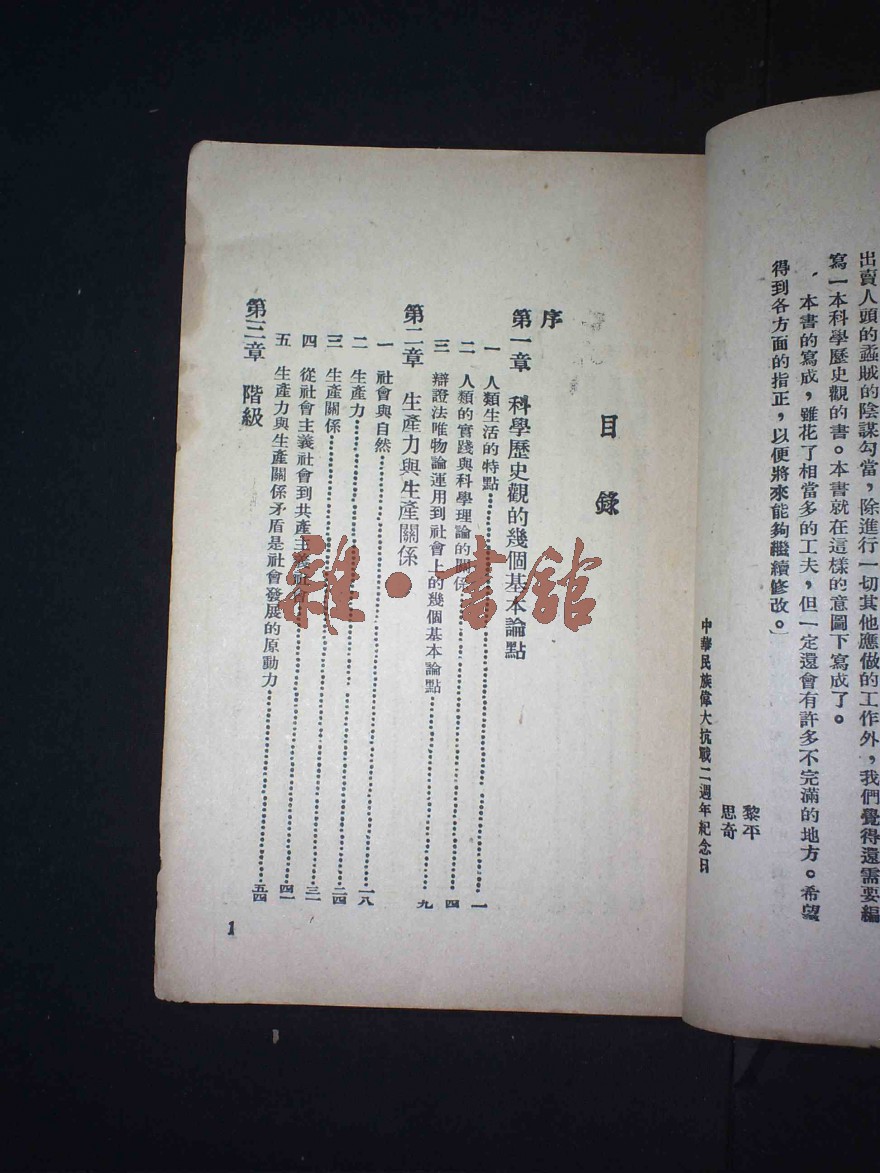 出賣人頭的蟊賊的陰謀勾當，除進行一切其他應做的工作外，我們覺得還需要編
寫一本科學歷史觀的書。本書就在這樣的意圖下寫成了。
本書的寫成，雖花了相當多的工夫，但一定還會有許多不完滿的地方。希望
得到各方面的指正，以便將來能夠繼續修改。
黎平
思奇
中華民族偉大抗戰二週年紀念日
目錄
序
第一章 科學歷史觀的幾個基本論點
一 人類生活的特點……一
二 人類的實踐與科學理論的關係……四
三 辯證法唯物論運用到社會上的幾個基本論點……九
第二章 生產力與生產關係
一 社會與自然……一八
二 生產力……二四
三 生產關係……三一
四 從社會主義社會到共產主義社會……四一
五 生產力與生產關係矛盾是社會發展的原動力……五四
第三章 階級
1
雜·書館